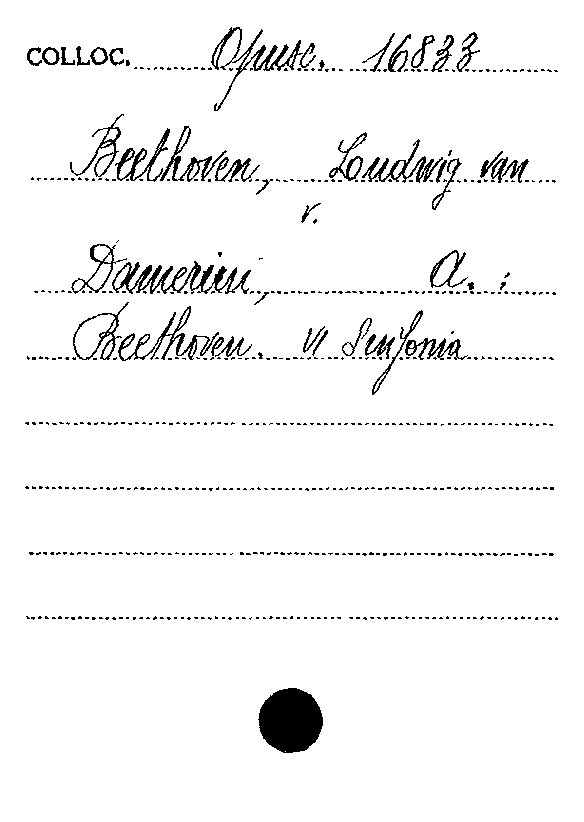 COLLOC. Opusc. 16833
Beethoven, Loudwig van
v.
Damerini, A. :
Beethoven. VI Sinfonia